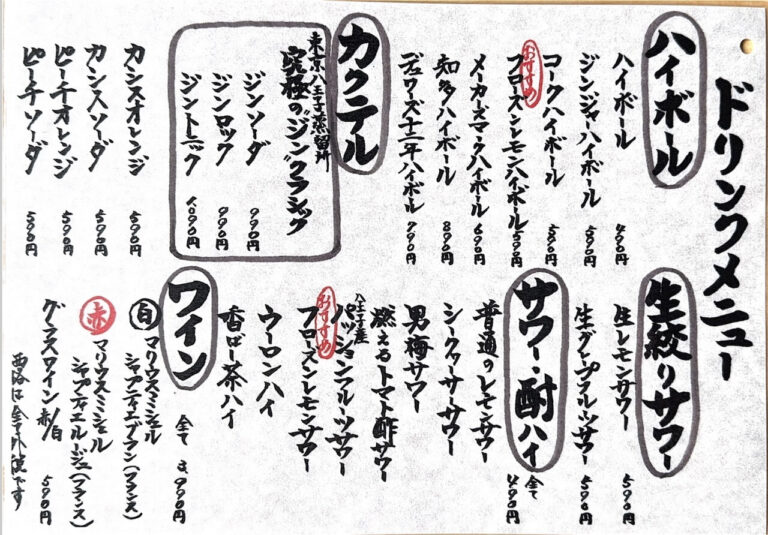 ドリンクメニュー
ハイボール
ハイボール 490円
ジンジャーハイボール 590円
コークハイボール 590円
おすすめ
フローズンレモンハイボール 590円
メーカーズマークハイボール 690円
知多ハイボール 890円
デュワーズ十二年ハイボール 790円
カクテル
東京八王子蒸留所
究極の"ジン"クラシック
ジンソーダ 990円
ジンロック 990円
ジントニック 1,090円
カシスオレンジ 590円
カシスソーダ 590円
ピーチオレンジ 590円
ピーチソーダ 590円
生絞りサワー
生レモンサワー 590円
生グレープフルーツサワー 590円
サワー・酎ハイ 全て 490円
普通のレモンサワー
シークヮーサーサワー
男梅サワー
燃えるトマト酢サワー
八王子産
パッションフルーツサワー
おすすめ
フローズンレモンサワー
ウーロンハイ
香ばし茶ハイ
ワイン 全て 2,990円
白 マリウスミシェル
シャプティエブラン(フランス)
赤 マリウスミシェル
シャプティエルージュ(フランス)
グラスワイン 赤/白 590円
価格は全て外税です